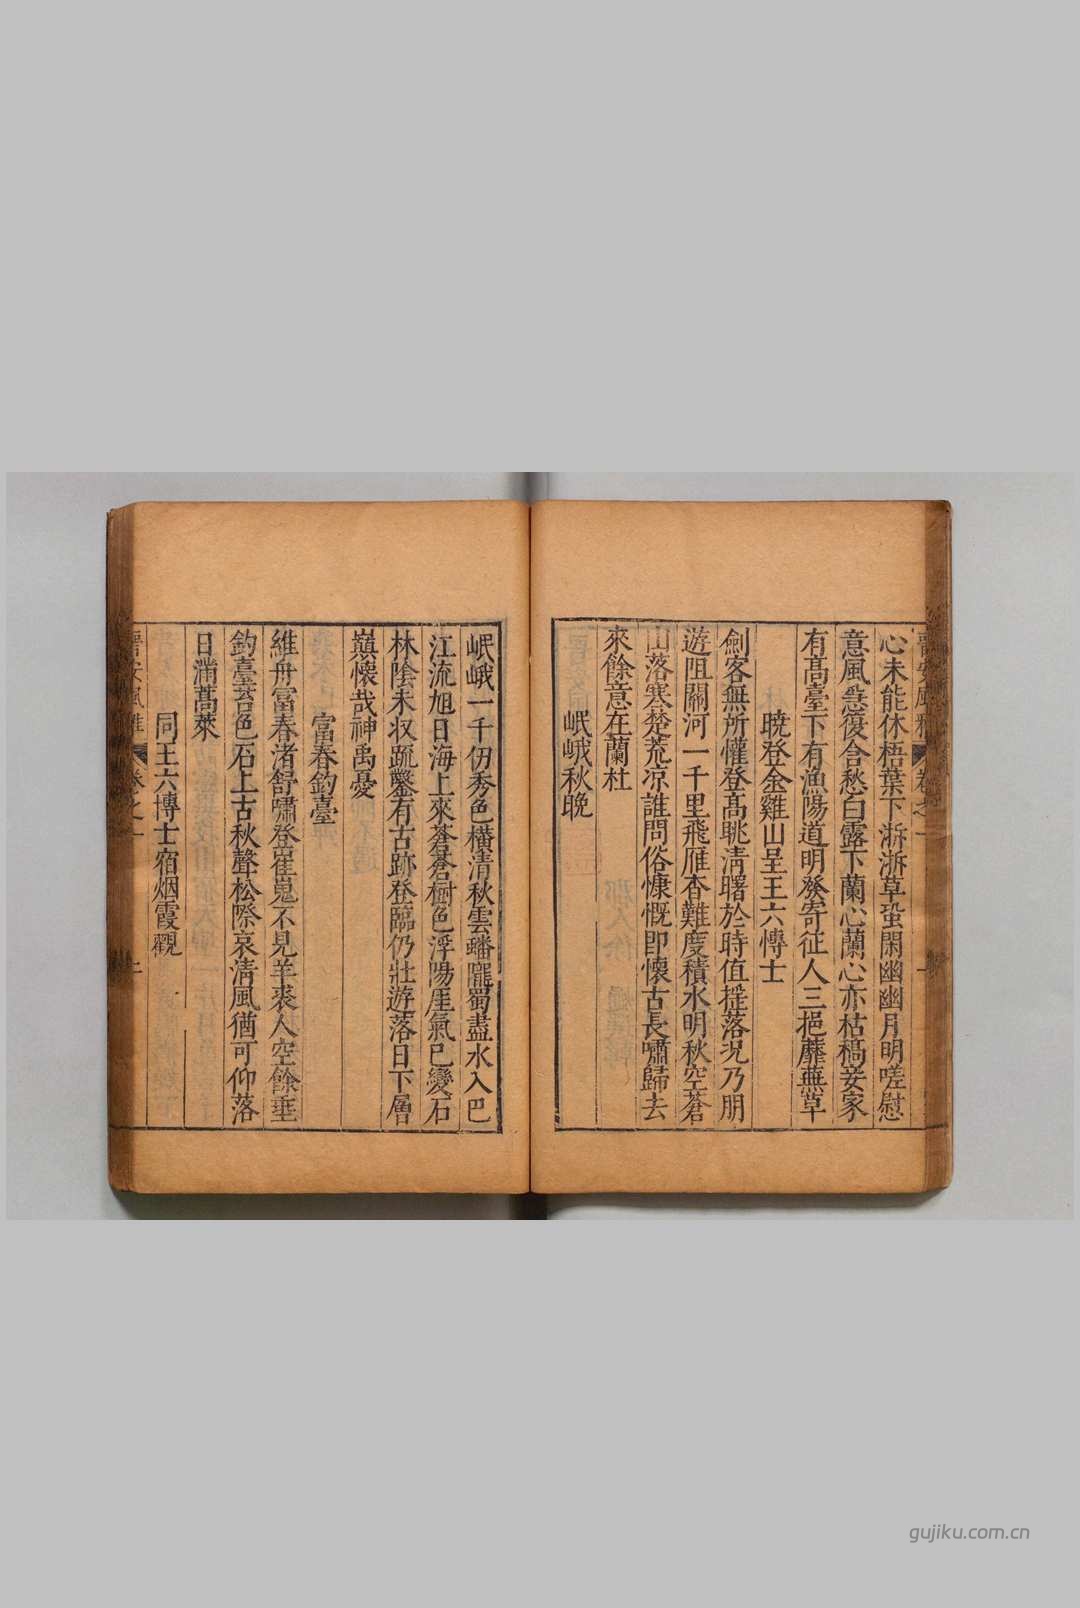 心未能休梧葉下淅淅草蛩閑幽幽月明嗟慰
意風急復合愁白露下蘭心蘭心亦枯槁妾家
有高臺下有漁陽道明發寄征人三挹蘼蕪草
曉登金雞山呈王六博士
劍客無所懽登高眺清曙於時值搖落况乃朋
遊阻關河一千里飛雁杳難度積水明秋空蒼
山落寒楚荒凉誰問俗慷慨即懷古長嘯歸去
來餘意在蘭杜
岷峨秋晚
岷峨一千仞秀色橫清秋雲蟠隴蜀盡水入巴
江流旭日海上來蒼蒼樹色浮陽厓氣已變石
林陰未収疏鑿有古跡登臨仍壯遊落日下層
巔懷哉神禹憂
富春釣臺
維舟富春渚舒嘯登崔嵬不見羊裘人空餘垂
釣臺苔色石上古秋聲松際哀清風猶可仰落
日滿蒿萊
同王六博士宿烟霞觀
晋安風雅 卷之一
gujiku.com.cn